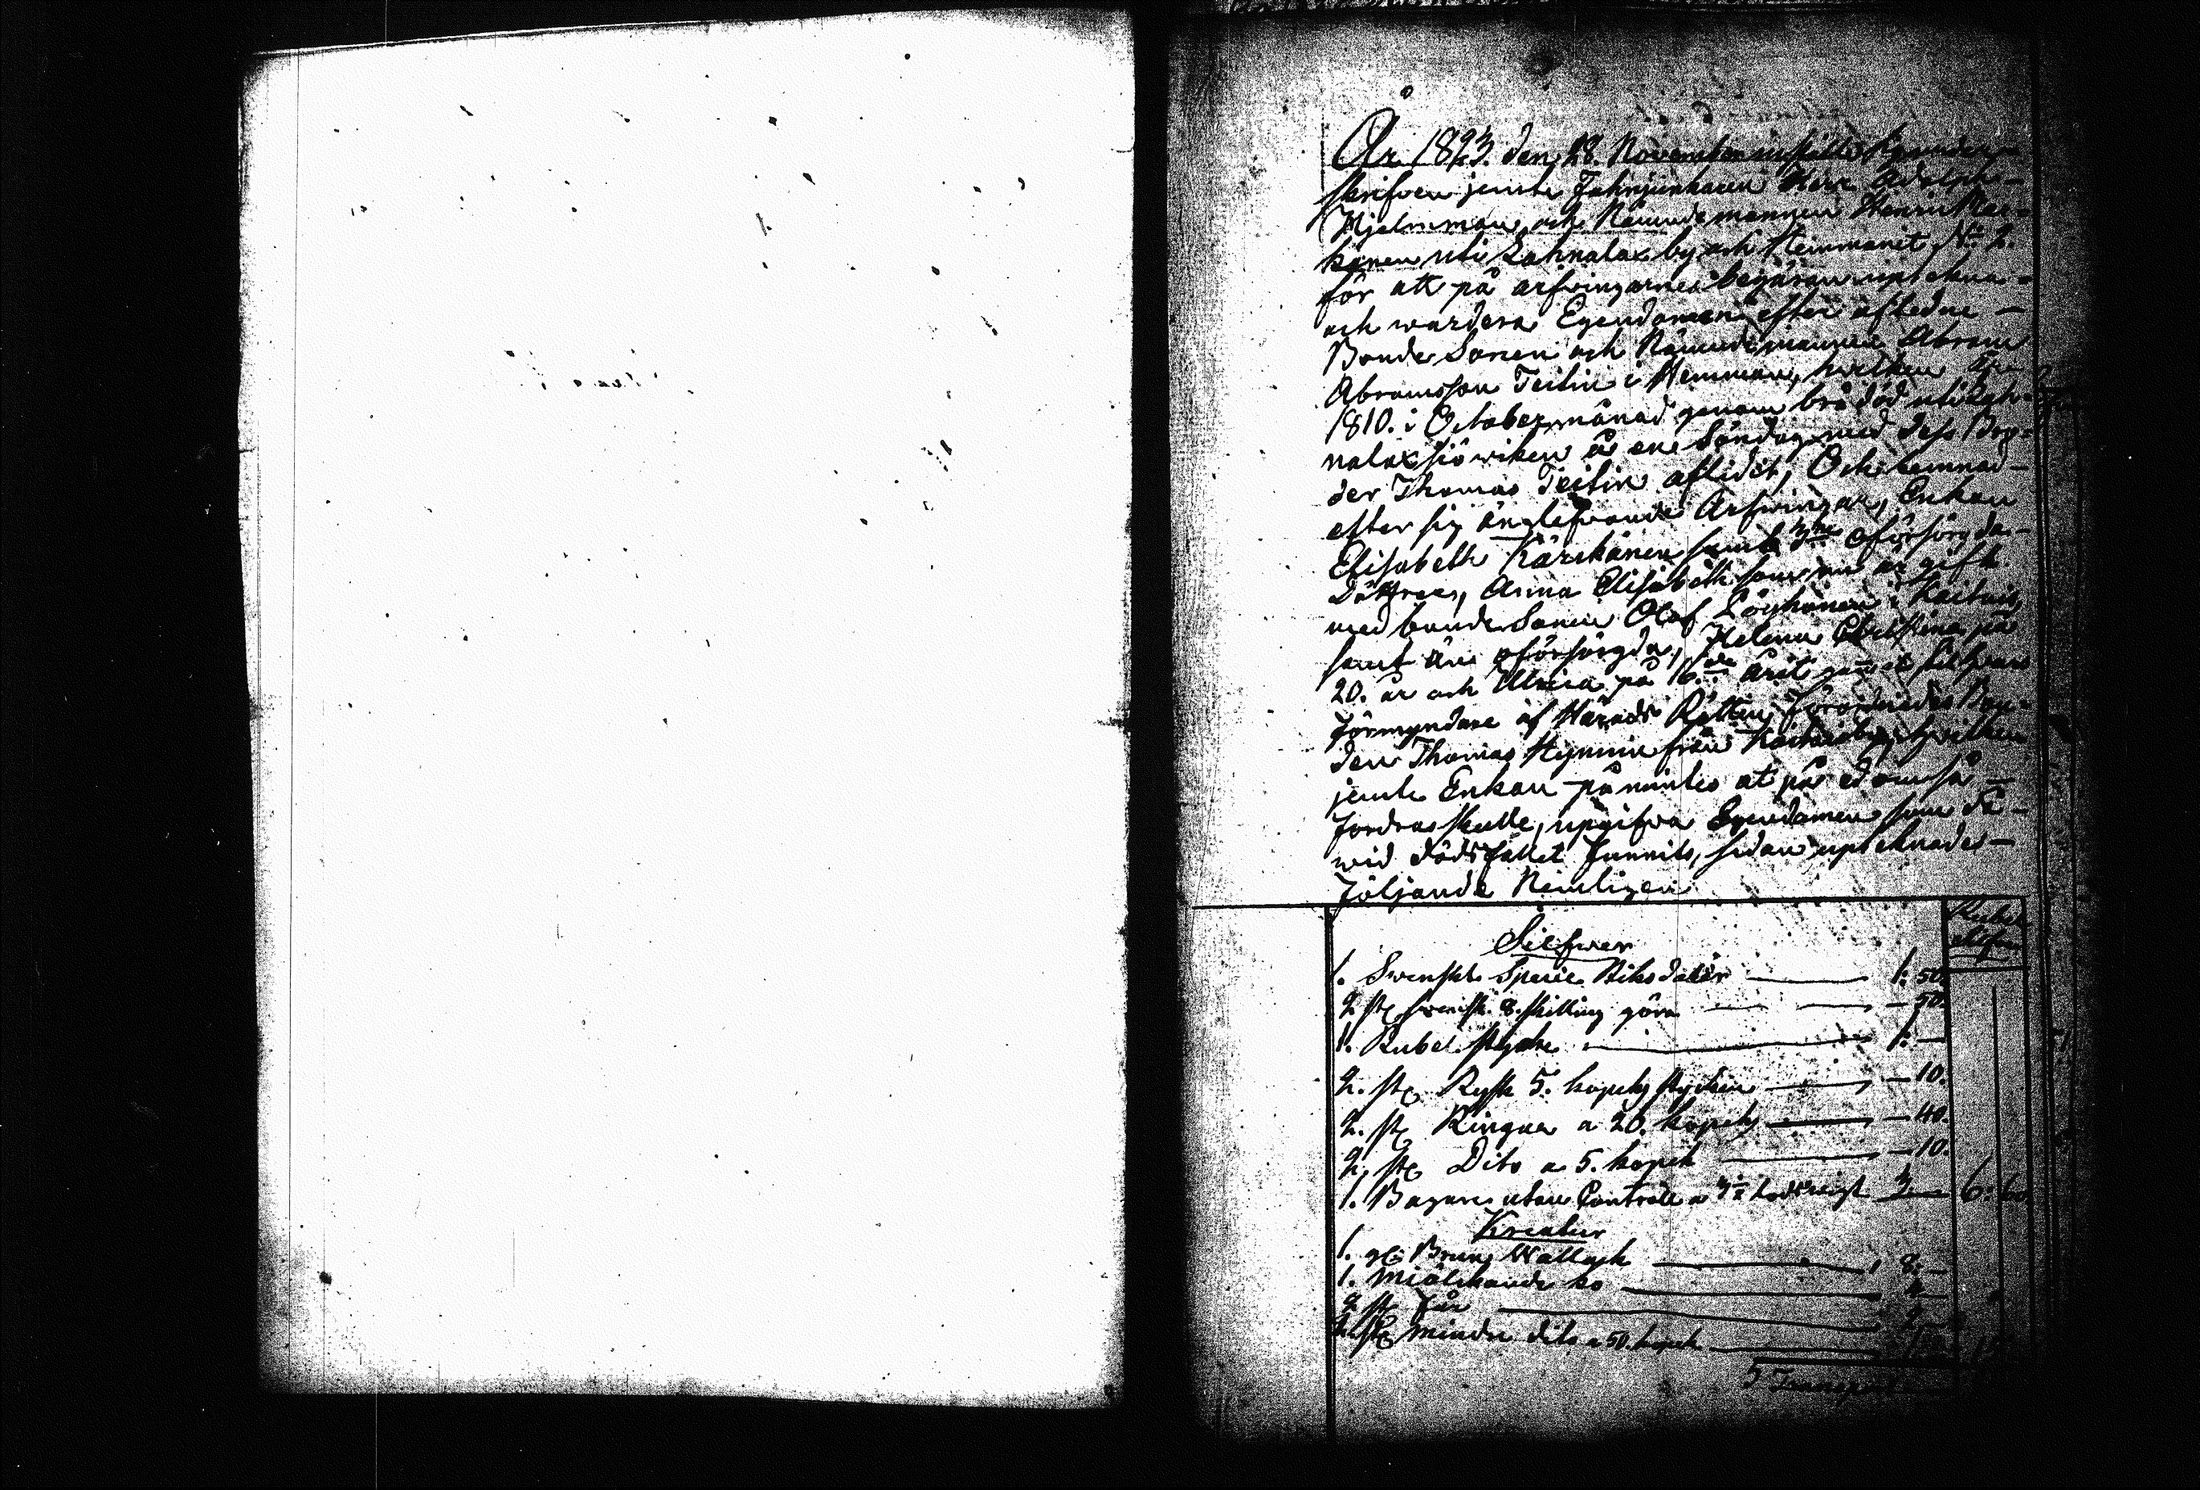 År 1823. den 28. November instälte sig under-
skrifven jemte Fahnjunkaren Herr Adolph
Hjelmman och Nämndemannen Henrik Kär-
känen uti Lahnalax by och Hemmanet No 2.
för att på arfvingarnes begäran uptekna
och wardera Egendomen efter afledne
Bonde Sonen och Nämndemannen Abram
Abramsson Teitin i Hemman, hvilken År
1810. i October månad genom brå död uti Lah-
nalax sjöwiken å en Söndag med dess Bro-
der Thomas Teitin aflidit, Och lemnad
efter sig änglefvande Arfvingar, Enkan
Elisabeth Kärckänen samt 3ne oförsörgda
Döttrar, Anna Elisabeth som nu är gift
med bonde Sonen Olof Löyhönen i
samt än oförsörgda, Helena Christina på
20. år och Ulrica på 16.de året
Förmyndare af Härads Rätten Förordnades Bon-
den Thomas Hynnin från hvilken
jemte Enkan påmintes at på ed om så
fordras skulle, upgifva Egendomen som då
wid dödsfallet funnits, sedan uptecknades
följande Nemligen
Silfwer
1. Swenskt Specie Riksdaler 1: 50.
2 st. Swensk 8. skilling — 50.
1. Rubel stycke 1: —
2. st. Rysk 5. kopek stycken — 10.
2. st. Ringar a 20. kopek — 40.
2. st. Dito a 5. kopek — 10.
1. Bägare utan Controll a lods vigt 3 — 6: 60
Kreatur
1. gl. Brun Wallack 8. —
1. Miölckande ko
2 st. får
st. mindre dito a 50. kopek
Transport